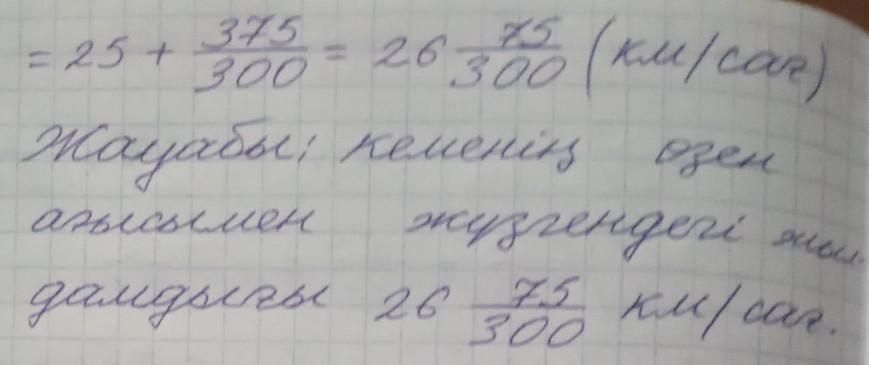 = 25 + 375/300 = 26 75/300 (км/сағ)
Жауабы: кеменің өзен
ағысымен жүзгендегі жыл-
дамдығы 26 75/300 км/сағ.